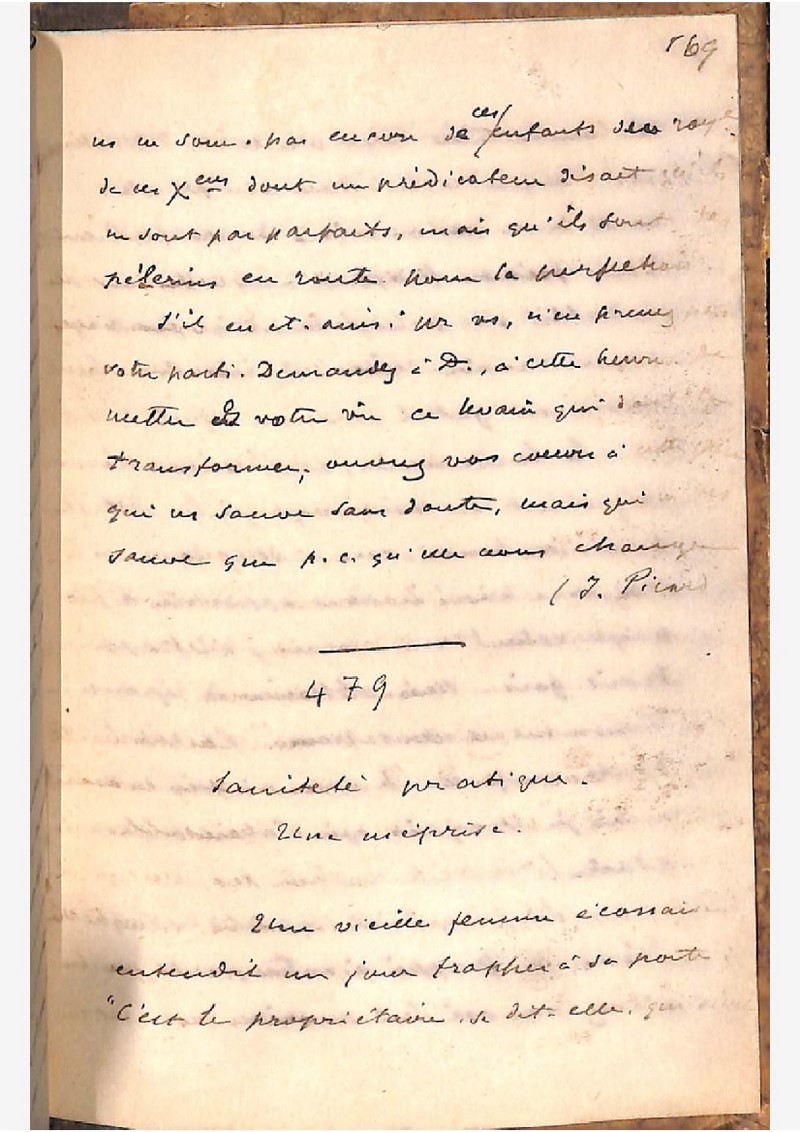 169
ces/
ns ne som. pas encore de enfants du roy.
de ces Xens dont un prédicateur disait qu'ils
ne sont pas parfaits, mais qu'ils sont des
pèlerins en route pour la perfection.
S'il en et. ainsi pr vs, n'en prenez pas
votre parti. Demandez à D., à cette heure de
mettre ds votre vie ce levain qui doit
transformer; ouvrez vos coeurs à
qui ns sauve sans doute, mais qui
sauve que p. c. qu'elle nous change
(J. Picard
479
Sainteté pratique.
Une méprise.
Une vieille femme écossaise
entendit un jour frapper à sa porte
"C'est le propriétaire, se dit-elle, qui